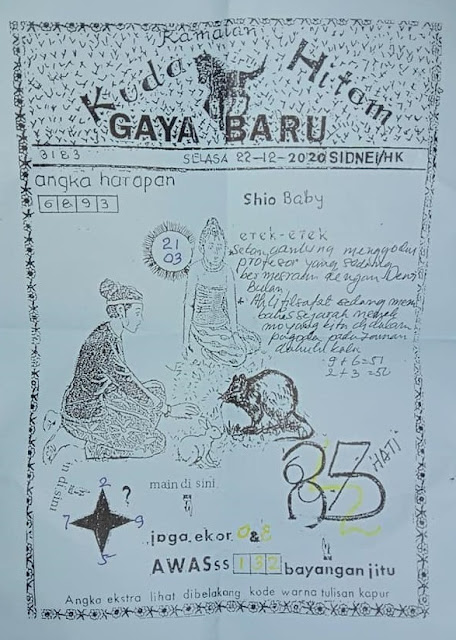 Ramalan
Kuda Hitam
GAYA BARU
3183 SELASA 22-12-2020 SIDNEI/HK
angka harapan
6893
Shio Baby
21
03
erek-erek
Setan gantung menggoda
profesor yang sedang
bermesraan dengan Dewi
Bulan
+ Ahli filsafat sedang mem
bahas sejarah nenek
moyang kita di dalam
pagoda pada zaman
dahulu kala
9+6=51
2+3=50
HATI
85
6
2
main di sini
in disini
2
?
7
9
5
jaga.ekor. 0&8
AWASss 132 bayangan jitu
Angka ekstra lihat dibelakang kode warna tulisan kapur